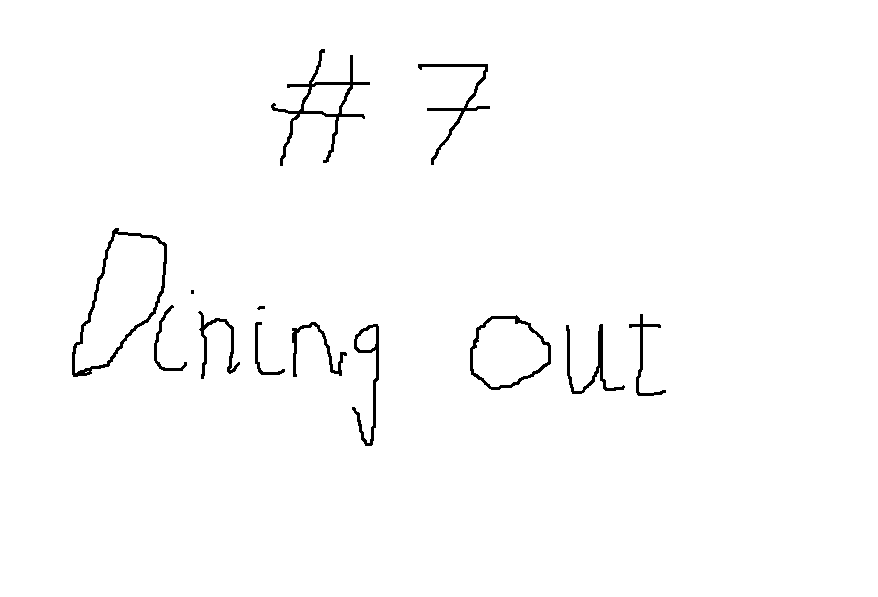 # 7
Dining Out